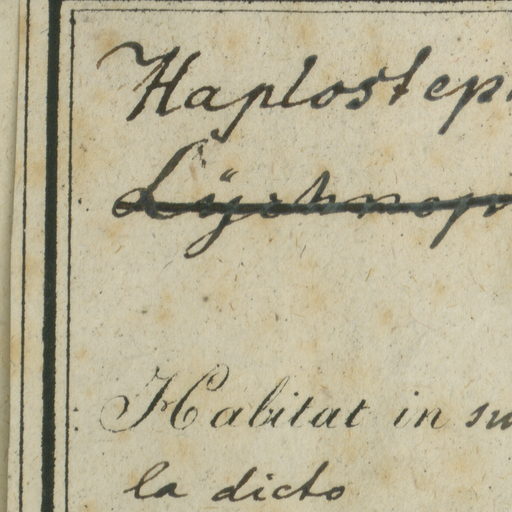 Haplosteph
Lÿchnop
Habitat in su
la dicto